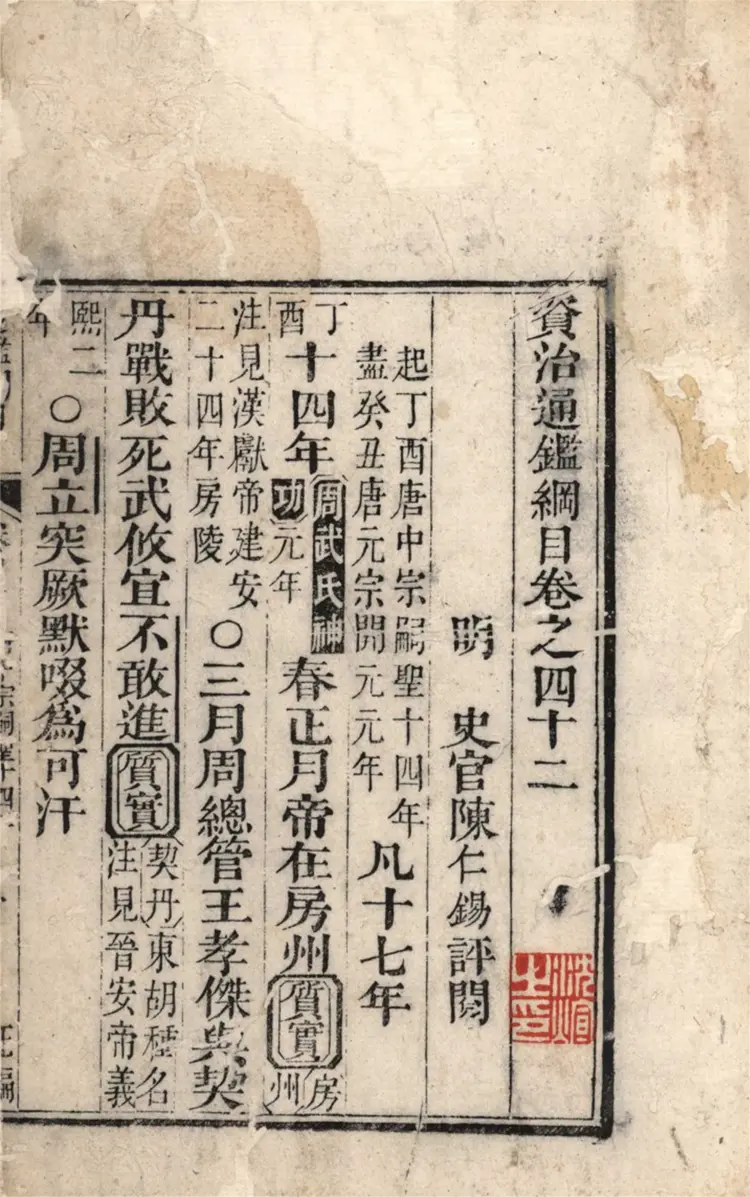 資治通鑑綱目卷之四十二
明 史官陳仁錫評閱
起丁酉唐中宗嗣聖十四年盡癸丑唐元宗開元元年凡十七年
丁酉十四年周武氏神功元年春正月帝在房州質實房州
注見漢獻帝建安二十四年房陵○三月周總管王孝傑與契
丹戰敗死武攸宜不敢進質實契丹東胡種名注見晉安帝義
熙二年○周立突厥默啜爲可汗
之印